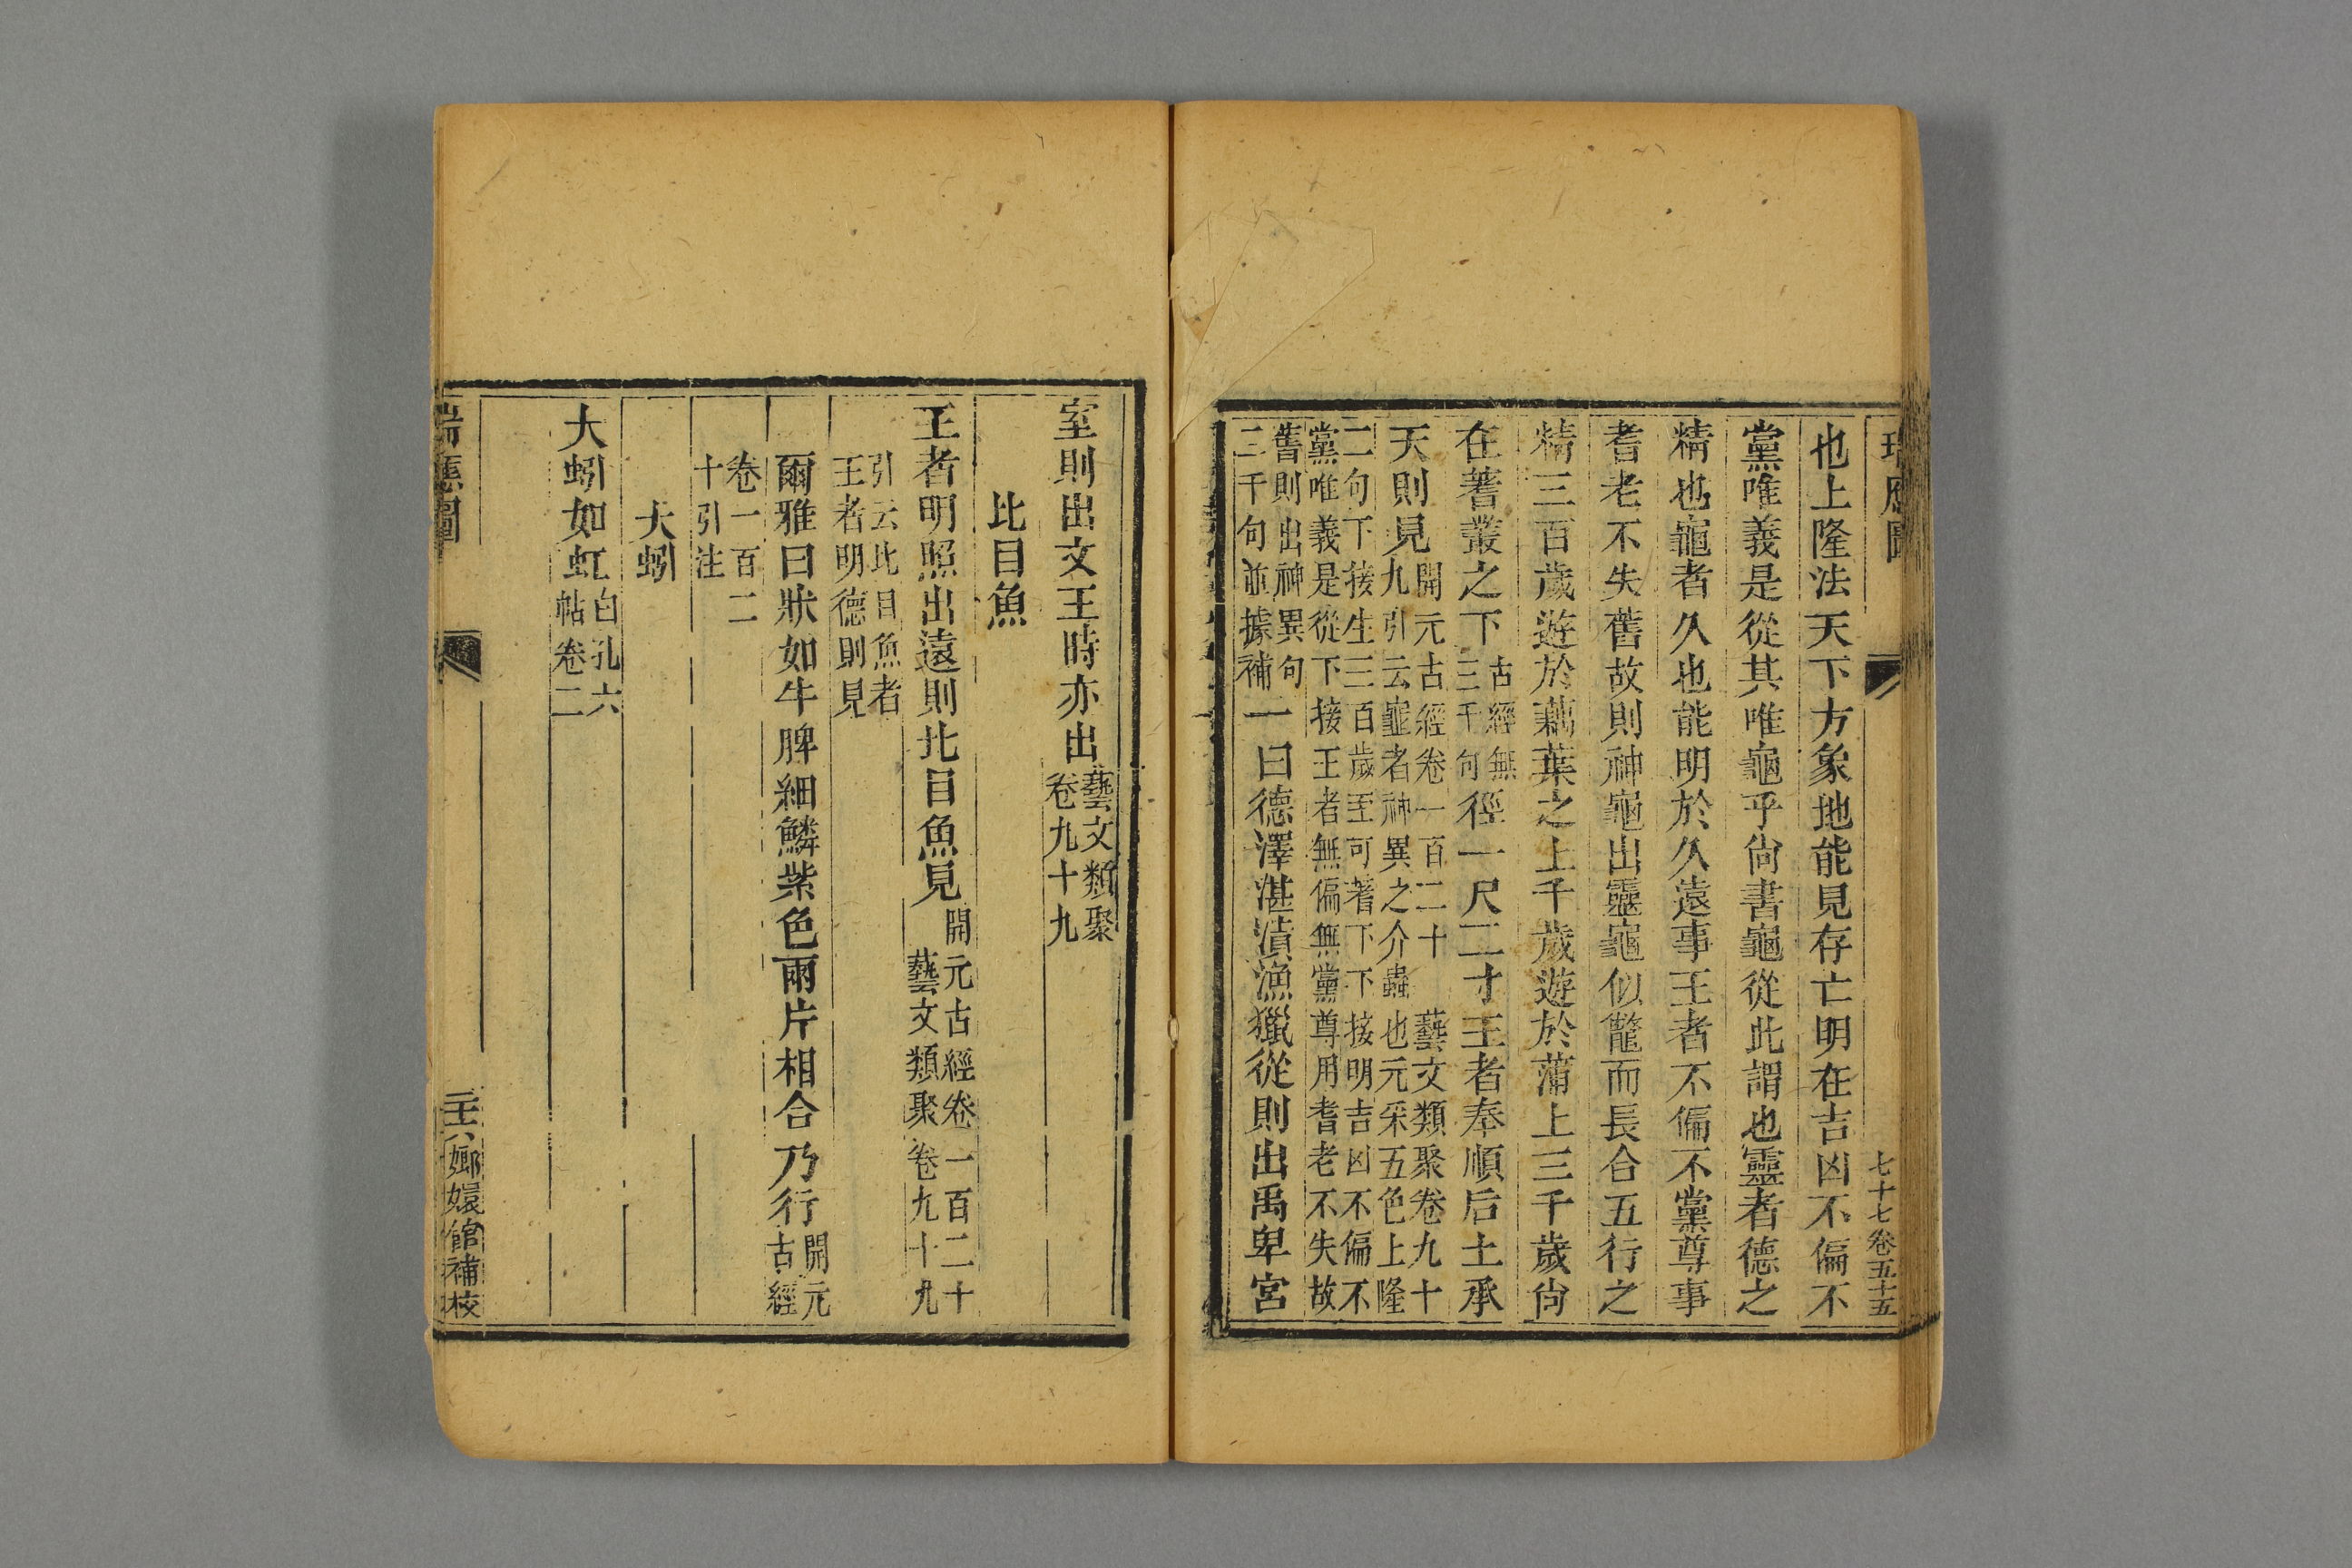 七十七卷五十五
也上隆法天下方象地能見存亡明在吉凶不偏不
黨唯義是從其唯龜乎尙書龜從此謂也靈者德之
精也龜者久也能明於久遠事王者不偏不黨尊事
耆老不失舊故則神龜出靈龜似鼈而長合五行之
精三百歲遊於藕葉之上千歲遊於蒲上三千歲尙
在蓍叢之下古經無三千句徑一尺二寸王者奉順后土承
天則見開元古經卷一百二十九引云龜者神異之介蟲也元采五色上隆藝文類聚卷九十
二句下接生三百歲至可著下下接明吉凶不偏不
黨唯義是從下接王者無偏無黨尊用耆老不失故
舊則出神異句
二千句並據補一曰德澤湛漬漁獵從則出禹卑宮
室則出文王時亦出藝文類聚卷九十九
比目魚
王者明照出遠則比目魚見開元古經卷一百二十藝文類聚卷九十九
引云比目魚者
王者明德則見
爾雅曰狀如牛脾細鱗紫色兩片相合乃行開元古經
卷一百二
十引注
大蚓
大蚓如虹白孔六帖卷二
瑞應圖
嫏嬛館補校